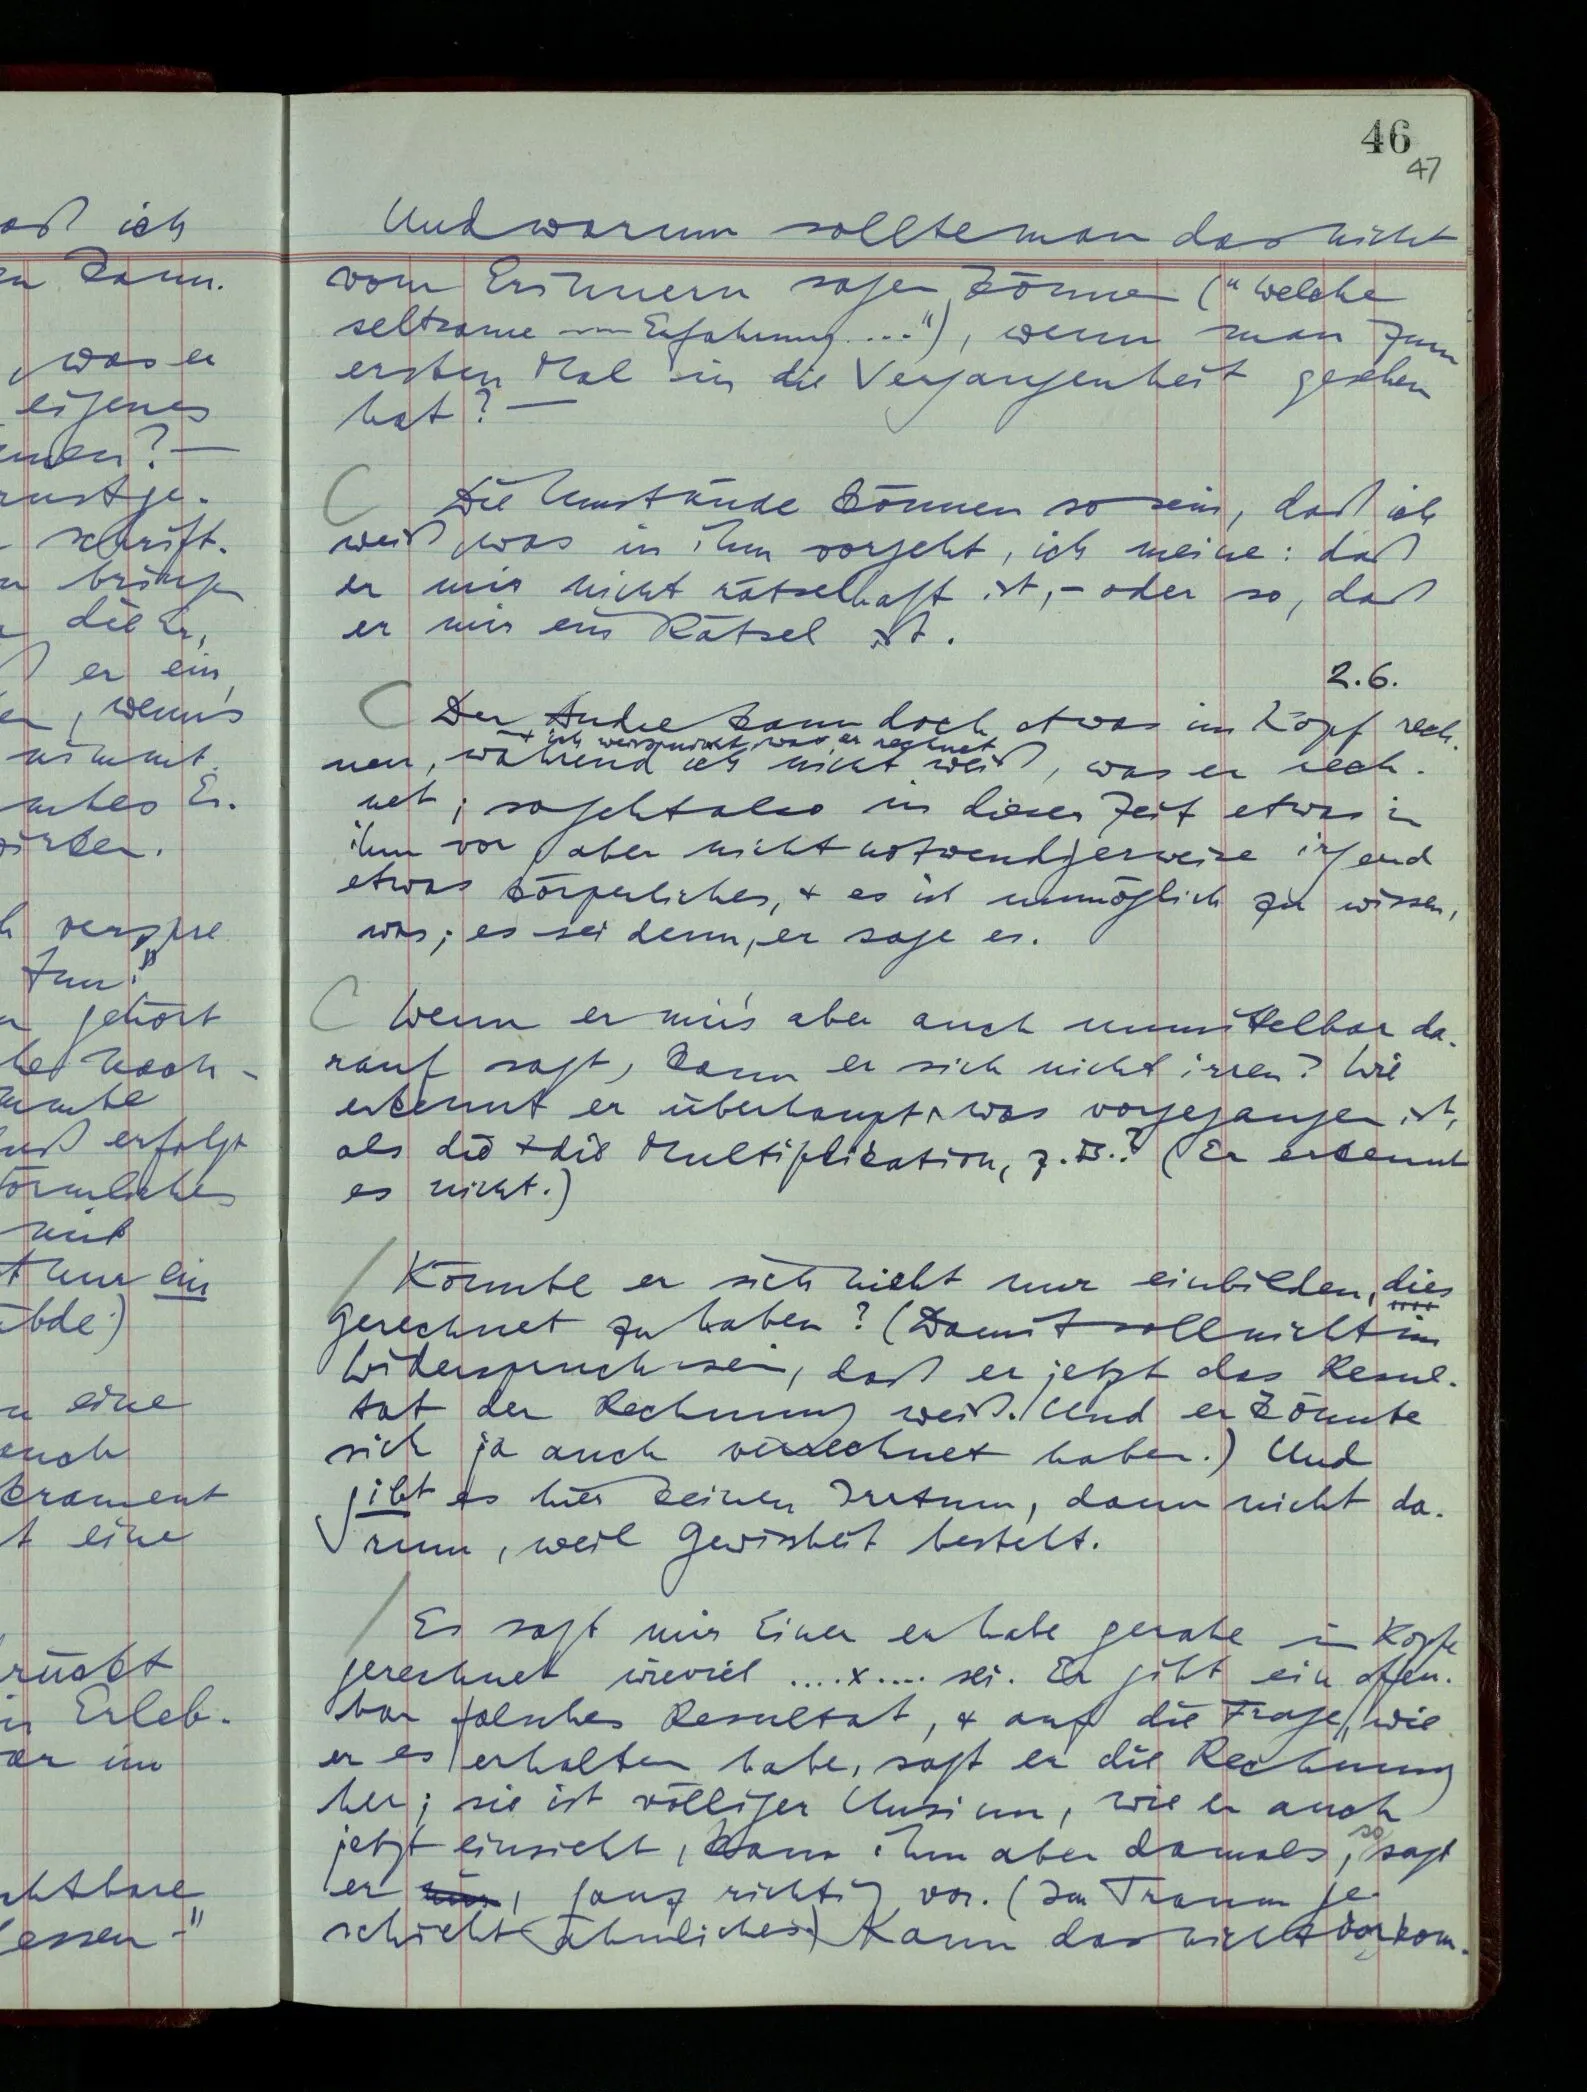 46
47
aß ich
kann.
was er
eigenes
nen? —
schrift-
bringen
er ein,
, wenn's
nimmt
wirken.
verspre
tun."
gehört
nach-
erfolgt
mit
nur ein
eine
auch
krament
t eine
rückt
Erleb-
im
chtbare
essen –"
Und warum sollte man das nicht
vom Erinnern sagen können ("welche
seltsame Erfahrung ....."), wenn man zum
ersten Mal in die Vergangenheit gesehen
hat? —
C Die Umstände können so sein, daß ich
weiß, was in ihm vorgeht, ich meine: daß
er mir nicht rätselhaft ist, – oder so, daß
er mir ein Rätsel ist.
2.6.
C Der Andre kann doch etwas im Kopf rech-
+ ich weiss nicht, was er rechnet
nen, während ich nicht weiß, was er rech-
net; so geht also in dieser Zeit etwas in
ihm vor, aber nicht notwendigerweise irgend
etwas körperliches, + es ist unmöglich zu wissen,
was; es sei denn, er sage es.
C Wenn er mir's aber auch unmittelbar da-
rauf sagt, kann er sich nicht irren? Wie
erkennt er überhaupt, was vorgegangen ist,
als die + die Multiplikation, z.B.? (Er erkennt
es nicht.)
/ Könnte er sich nicht nur einbilden, dies
gerechnet zu haben? (Damit soll nicht im
Widerspruch sein, daß er jetzt das Resul-
tat der Rechnung weiß. Und er könnte
sich ja auch verrechnet haben.) Und
gibt es hier keinen Irrtum, dann nicht da-
rum, weil Gewißheit besteht.
/ Es sagt mir Einer er habe gerade im Kopfe
gerechnet wieviel ....x.... sei. Er gibt ein offen-
bar falsches Resultat, + auf die Frage, wie
er es erhalten habe, sagt er die Rechnung
her; sie ist völliger Unsinn, wie er auch
jetzt einsieht, kam ihm aber damals, so sagt
er, ganz richtig vor. (Im Traum ge-
schieht ähnliches.) Kann das nicht vorkom-